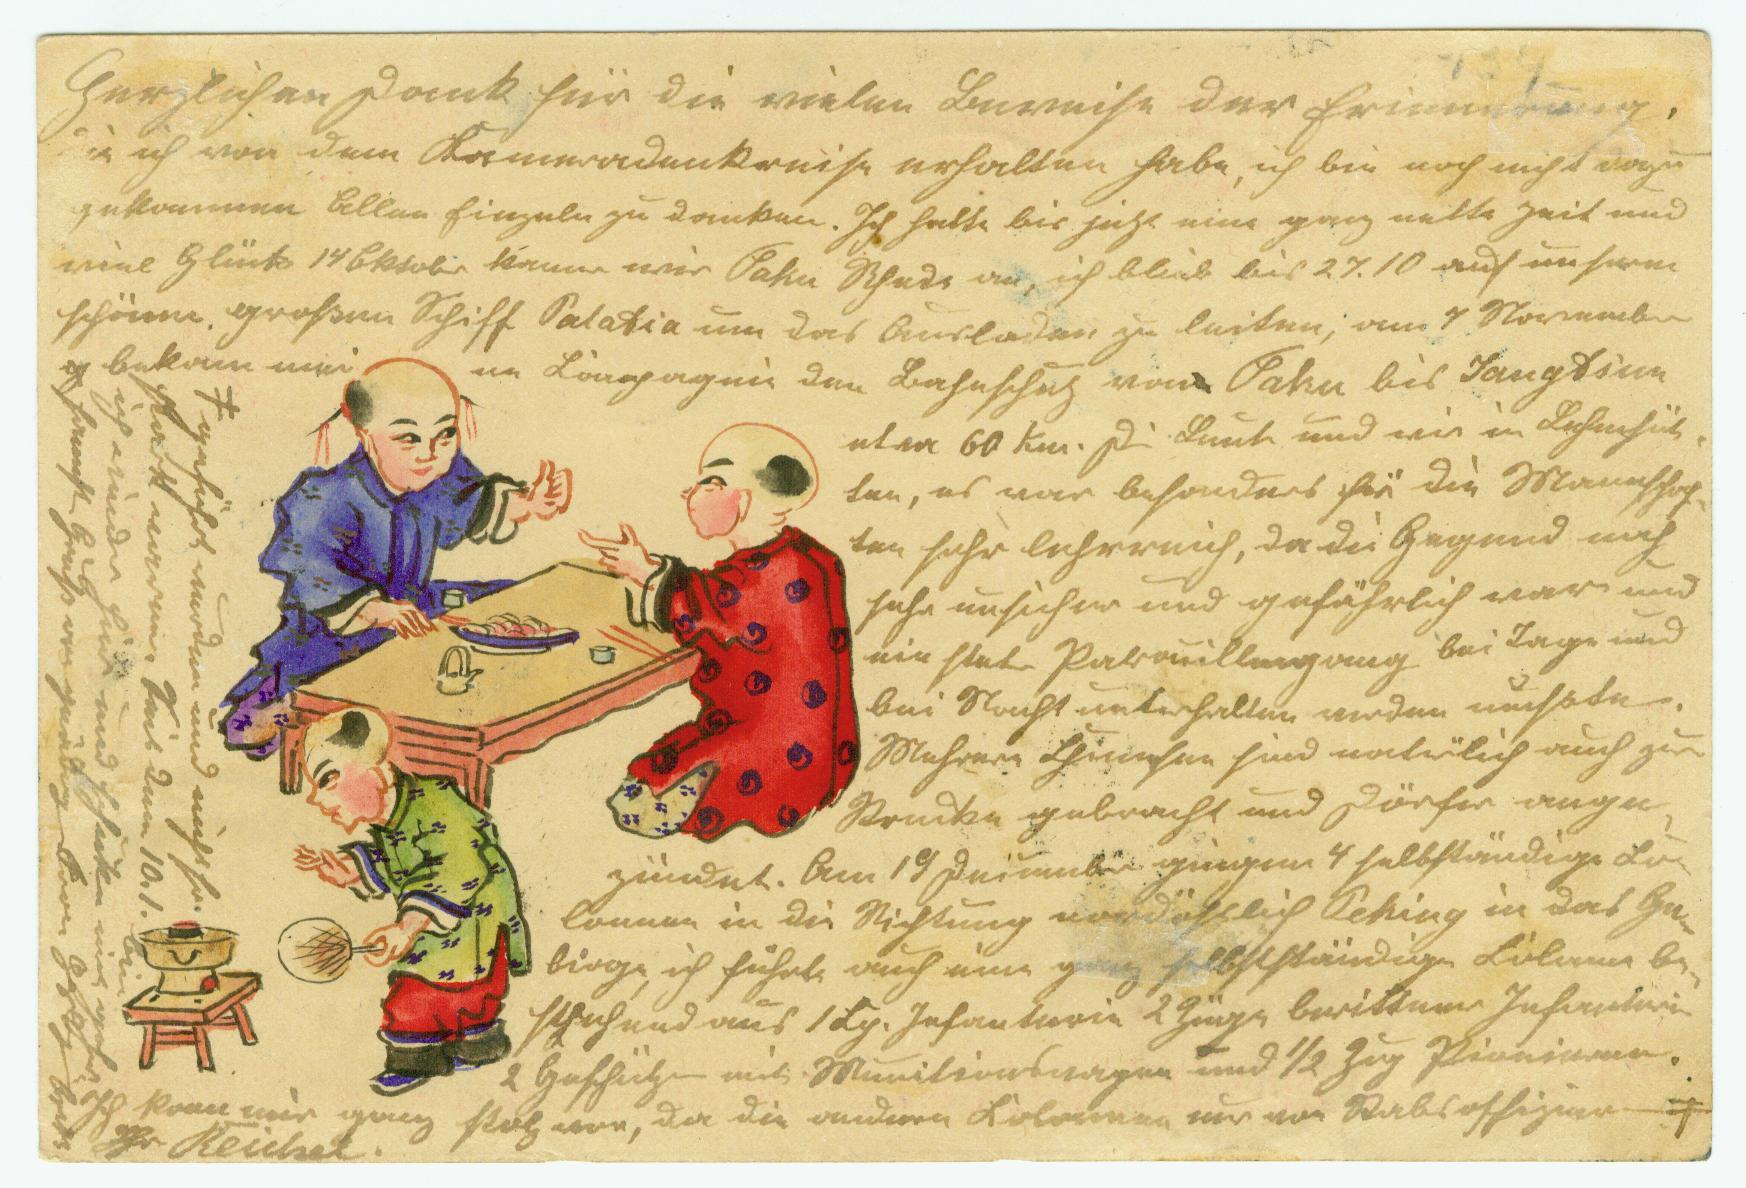 Herzlichen Dank für die vielen Beweise der Erinnerung,
die ich von dem Kameradenkreise erhalten habe, ich bin noch nicht dazu
gekommen Allen Einzeln zu danken. Ich hatte bis jetzt eine ganz nette Zeit und
viel Glück 14 Oktober kamen wir Taku Rhede an, ich blieb bis 27.10 auf unserem
schönen, großen Schiff Palatia um das Ausladen zu leiten, am 7 November
bekam mei ne Compagnie den Bahnschutz von Taku bis Tangtsun
etwa 60 Km. Di Leute und wir in Lehmhüt-
ten, es war besonders für die Mannschaf-
ten sehr lehrreich, da die Gegend noch
sehr unsicher und gefährlich war und
ein steter Patrouillengang bei Tage und
bei Nacht unterhalten werden mußte.
Mehrere Chinesen sind natürlich auch zur
Strecke gebracht und Dörfer ange-
zündet. Am 19 Dezember gingen 4 selbständige Co-
lonnen in die Richtung nordöstlich Peking in das Ge-
birge, ich führte auch eine ganz selbstständige Colonne be-
stehend aus 1 Cp. Infanterie 2 Züge berittener Infanterie
2 Geschütze mit Munitionswagen und 1/2 Zug Pionieren.
Ich kam mir ganz stolz vor, da die anderen Colonnen nur von Stabsoffizieren
+ geführt wurden und nicht so
stark waren. Seit dem 10.1. bin
ich wieder hier und
Gruß von
Ihr Reichel.